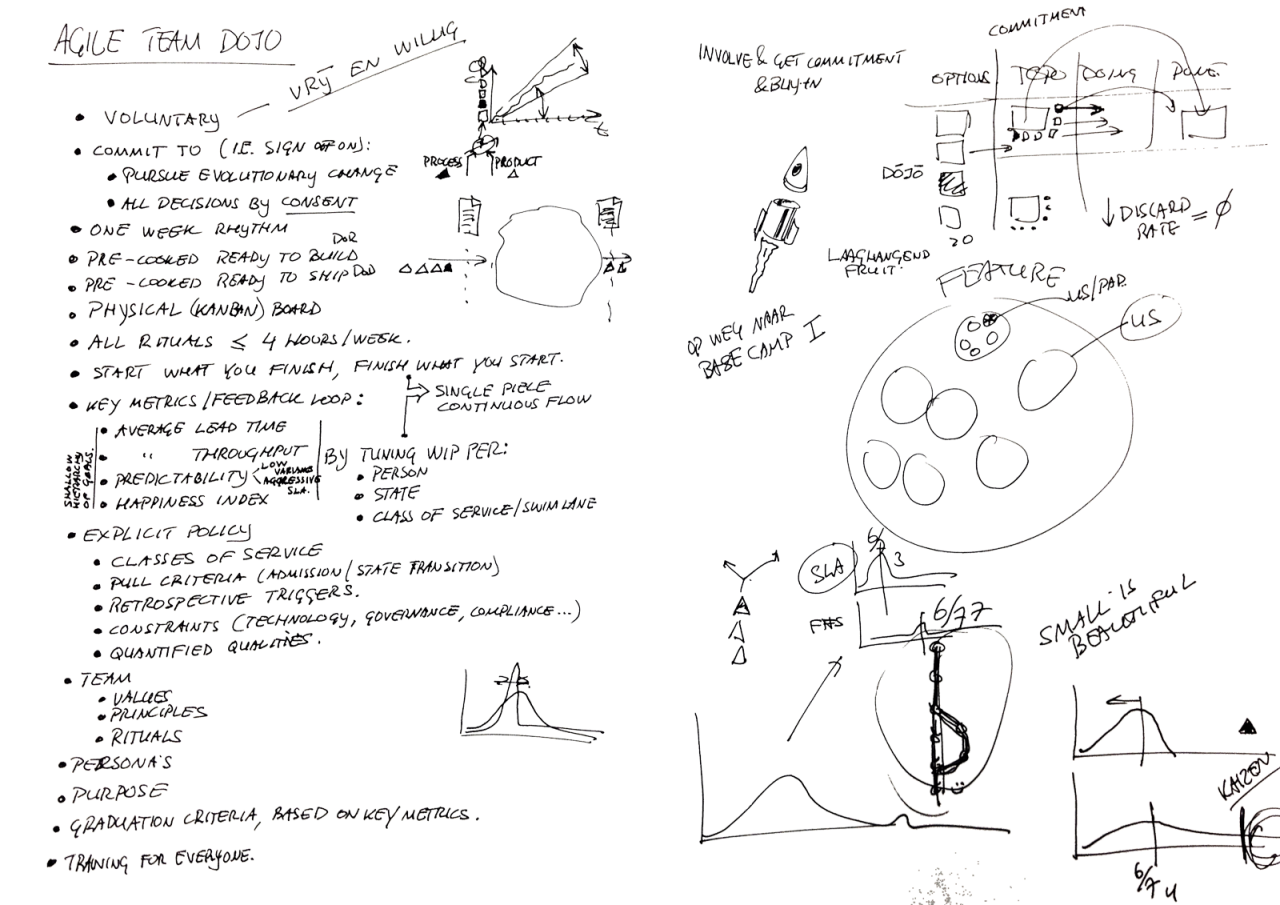 AGILE TEAM DOJO
VRY EN WILLIG
• VOLUNTARY
• COMMIT TO (I.E. SIGN OFF ON):
• PURSUE EVOLUTIONARY CHANGE
• ALL DECISIONS BY CONSENT
• ONE WEEK RHYTHM
• PRE-COOKED READY TO BUILD DOR
• PRE-COOKED READY TO SHIP DOD
• PHYSICAL (KANBAN) BOARD
• ALL RITUALS ≤ 4 HOURS/WEEK.
• START WHAT YOU FINISH, FINISH WHAT YOU START.
SINGLE PIECE
CONTINUOUS FLOW
• KEY METRICS/FEEDBACK LOOP:
• AVERAGE LEAD TIME
• " THROUGHPUT
• PREDICTABILITY < LOW VARIANCE
AGGRESSIVE SLA.
• HAPPINESS INDEX
SHALLOW
HIERARCHY
OF GOALS.
BY TUNING WIP PER:
• PERSON
• STATE
• CLASS OF SERVICE/SWIMLANE
• EXPLICIT POLICY
• CLASSES OF SERVICE
• PULL CRITERIA (ADMISSION/STATE TRANSITION)
• RETROSPECTIVE TRIGGERS.
• CONSTRAINTS (TECHNOLOGY, GOVERNANCE, COMPLIANCE...)
• QUANTIFIED QUALITIES.
• TEAM
• VALUES
• PRINCIPLES
• RITUALS
• PERSONA'S
• PURPOSE
• GRADUATION CRITERIA, BASED ON KEY METRICS.
• TRAINING FOR EVERYONE.
PROCESS PRODUCT
t
INVOLVE & GET COMMITMENT
& BUY-IN
COMMITMENT
OPTIONS TODO DOING DONE
DŌJŌ
20
↓ DISCARD
RATE = Ø
LAAGHANGEND
FRUIT.
OP WEG NAAR
BASE CAMP I
FEATURE
US/PAR.
US
SLA
6/
3
6/77
SMALL IS
BEAUTIFUL
KAIZEN
6/7 4